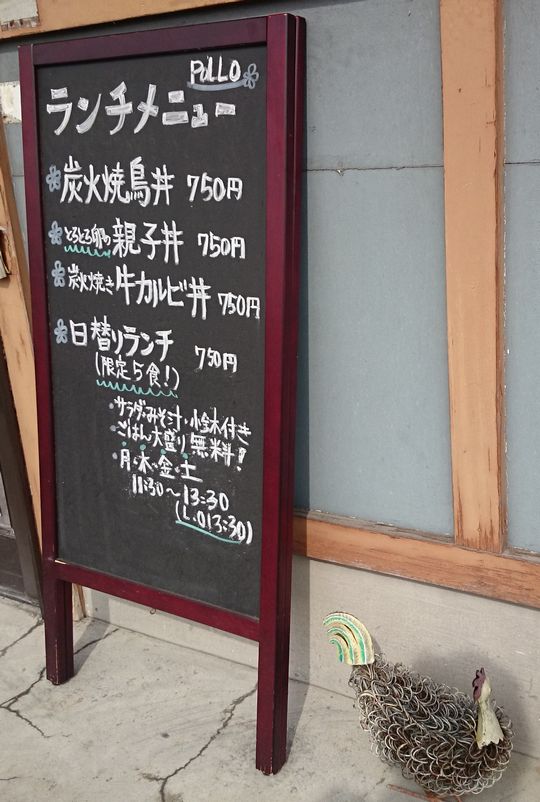 POLLO
ランチメニュー
炭火焼鳥丼 750円
とろとろ卵の親子丼 750円
炭火焼き牛カルビ丼 750円
日替りランチ 750円
(限定5食!)
・サラダ・みそ汁・小鉢付き
・ごはん大盛り無料!
・月・木・金・土
11:30〜13:30
(L.O13:30)